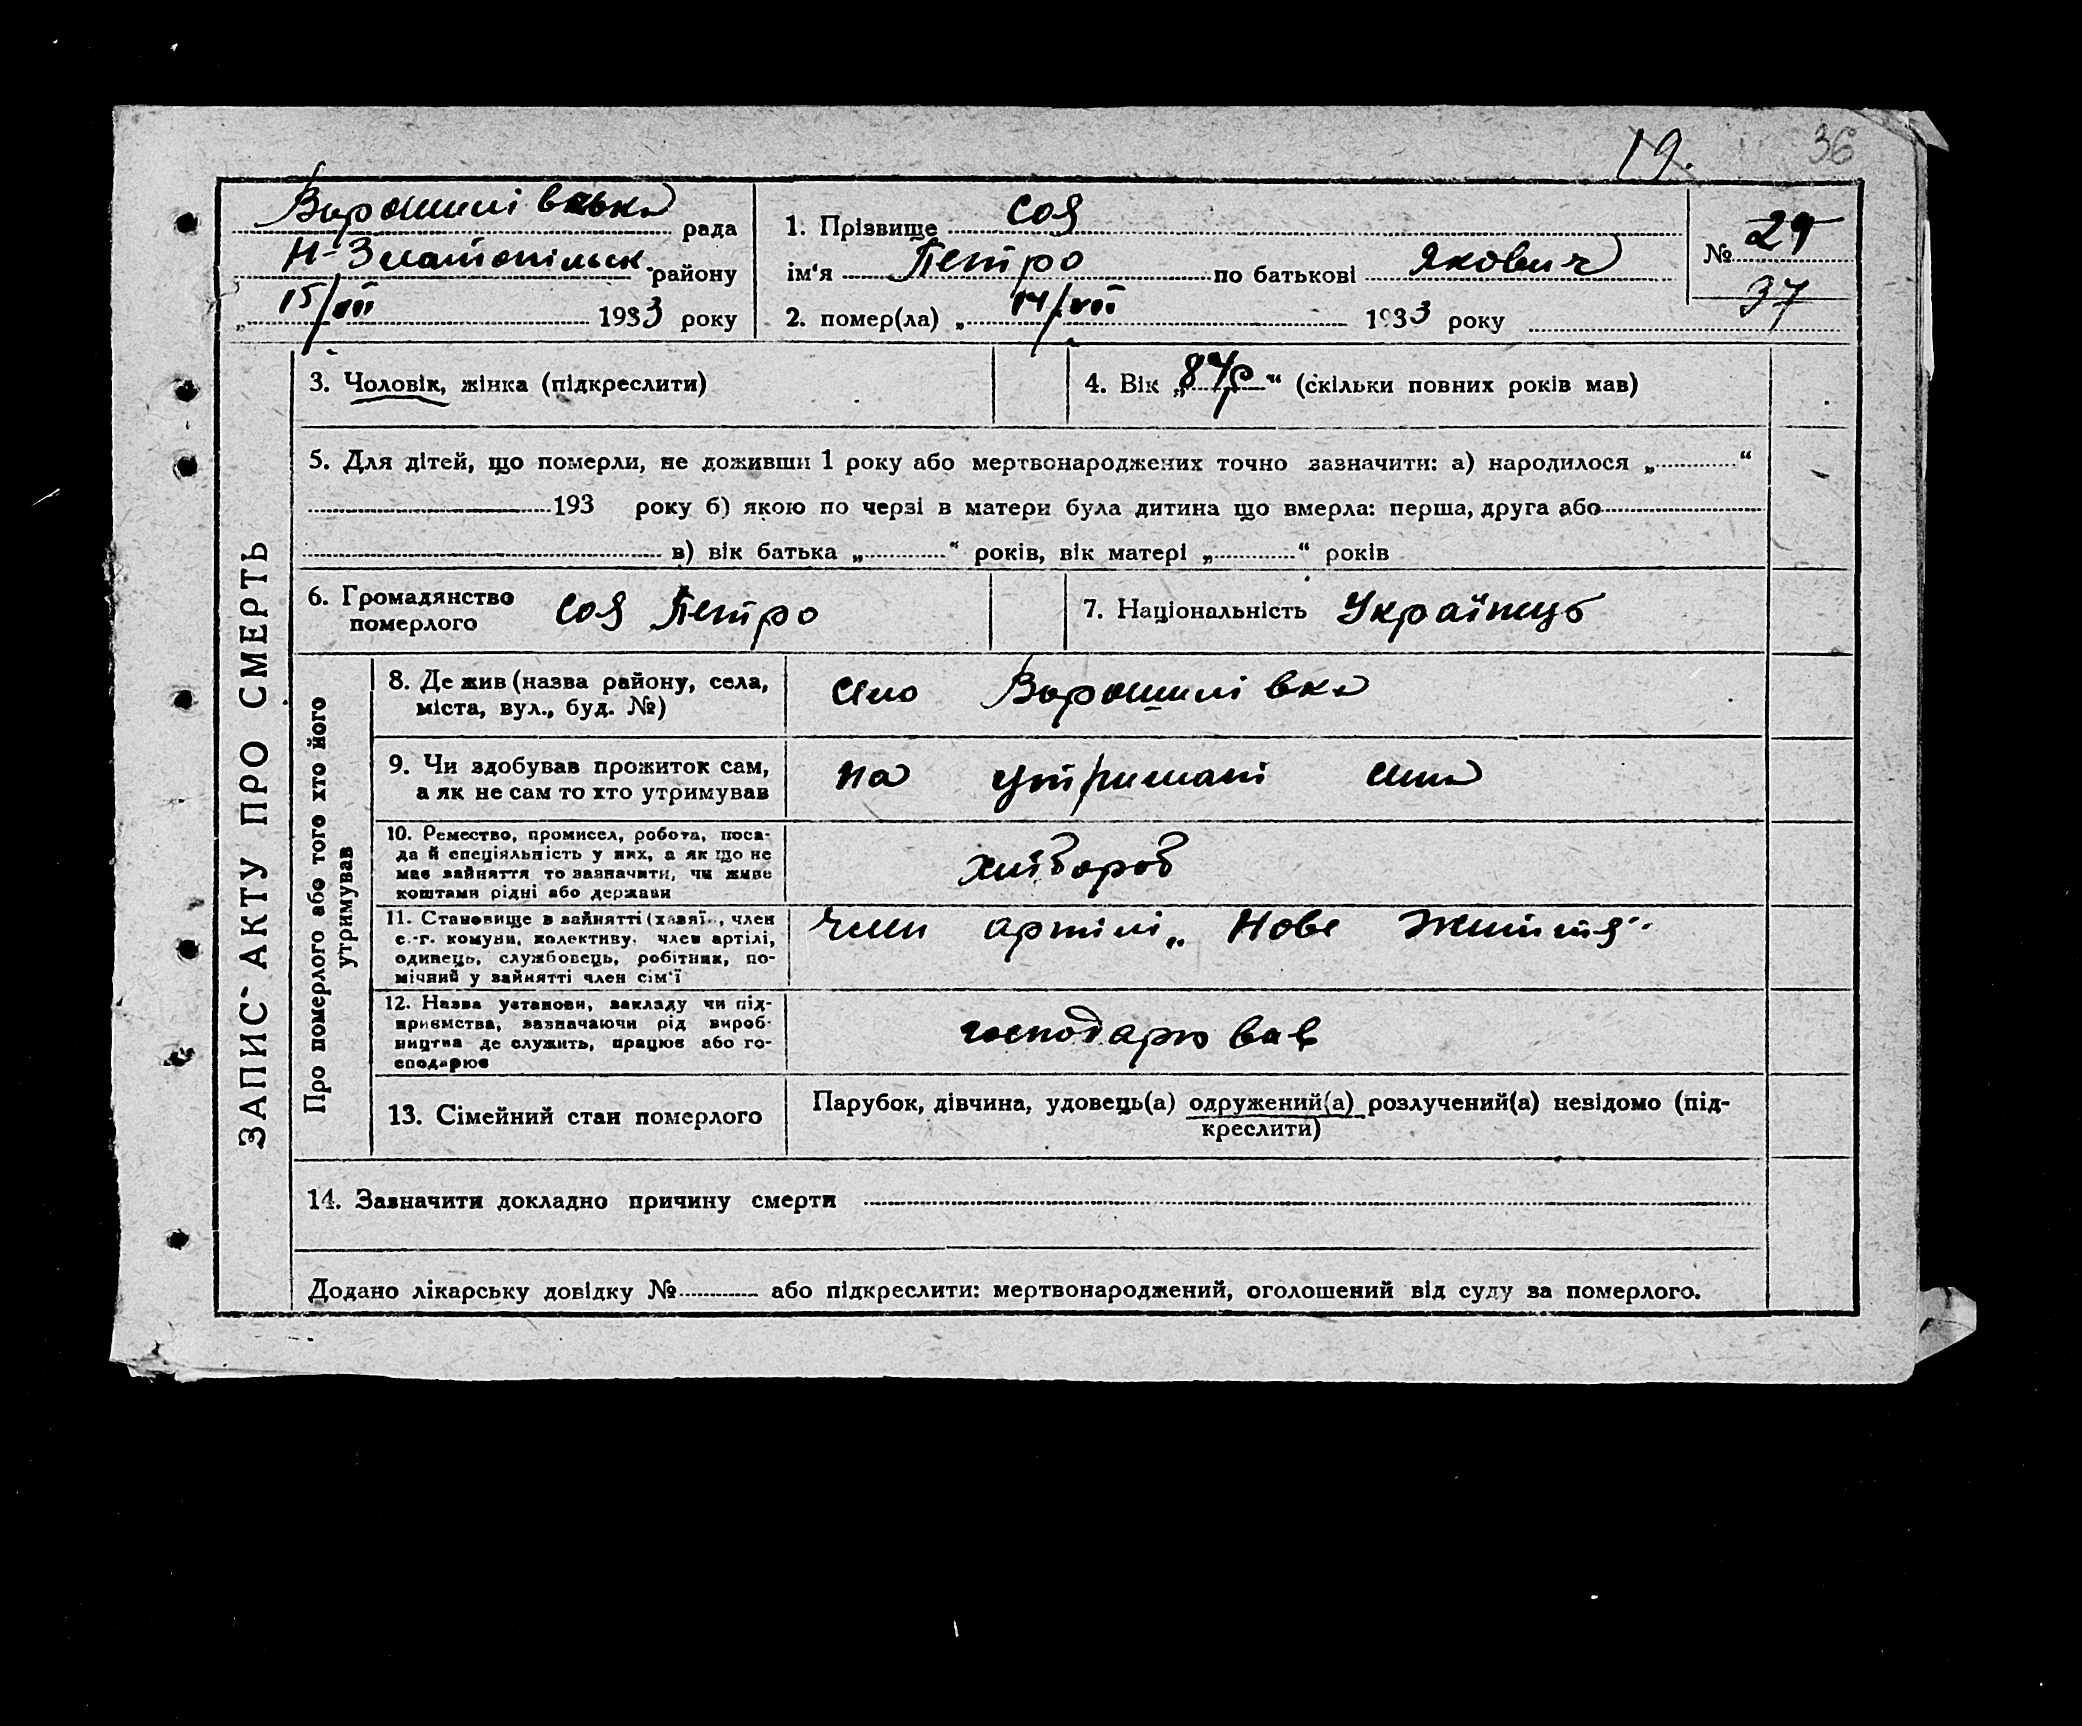 19. 36
Ворошилівська рада
Н-Златопільськ. району
„15/VII 1933 року
1. Прізвище Соя
ім'я Петро по батькові Якович
2. помер(ла) „14/VII 1933 року
№ 29
37
ЗАПИС АКТУ ПРО СМЕРТЬ
3. Чоловік, жінка (підкреслити)
4. Вік „87р“ (скільки повних років мав)
5. Для дітей, що померли, не доживши 1 року або мертвонароджених точно зазначити: а) народилося „ “
193 року б) якою по черзі в матери була дитина що вмерла: перша, друга або
в) вік батька „ “ років, вік матері „ “ років
6. Громадянство
померлого Соя Петро
7. Національність Українець
Про померлого або того хто його
утримував
8. Де жив (назва району, села,
міста, вул., буд. №)
село Ворошилівка
9. Чи здобував прожиток сам,
а як не сам то хто утримував
на утримані сина
10. Ремество, промисел, робота, поса-
да й спеціяльність у них, а як що не
має зайняття то зазначити, чи живе
коштами рідні або держави
хлібороб
11. Становище в зайнятті (хазяї., член
с.-г. комуни, колективу. член артілі,
одинець, службовець, робітник, по-
мічний у зайнятті член сім'ї
член артілі „Нове Життя"
12. Назва установи, закладу чи під-
приємства, зазначаючи рід вироб-
ництва де служить, працює або го-
сподарює
господарював
13. Сімейний стан померлого
Парубок, дівчина, удовець(а) одружений(а) розлучений(а) невідомо (під-
креслити)
14. Зазначити докладно причину смерти
Додано лікарську довідку № або підкреслити: мертвонароджений, оголошений від суду за померлого.